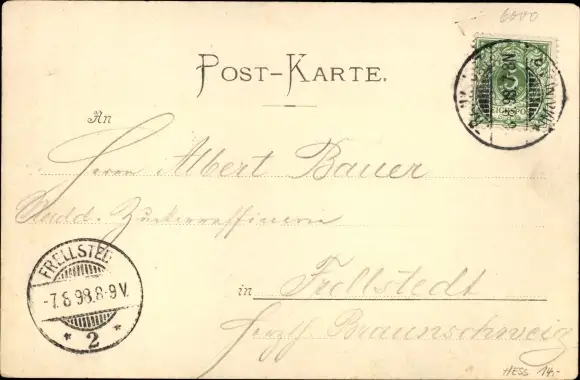 6000
POST-KARTE.
An
Herrn Albert Bauer
Zuckerraffinerie
in Frellstedt
Herzgth. Braunschweig
FRELLSTEDT
-7.8.98.8-9V.
* 2 *
HESS 14.-